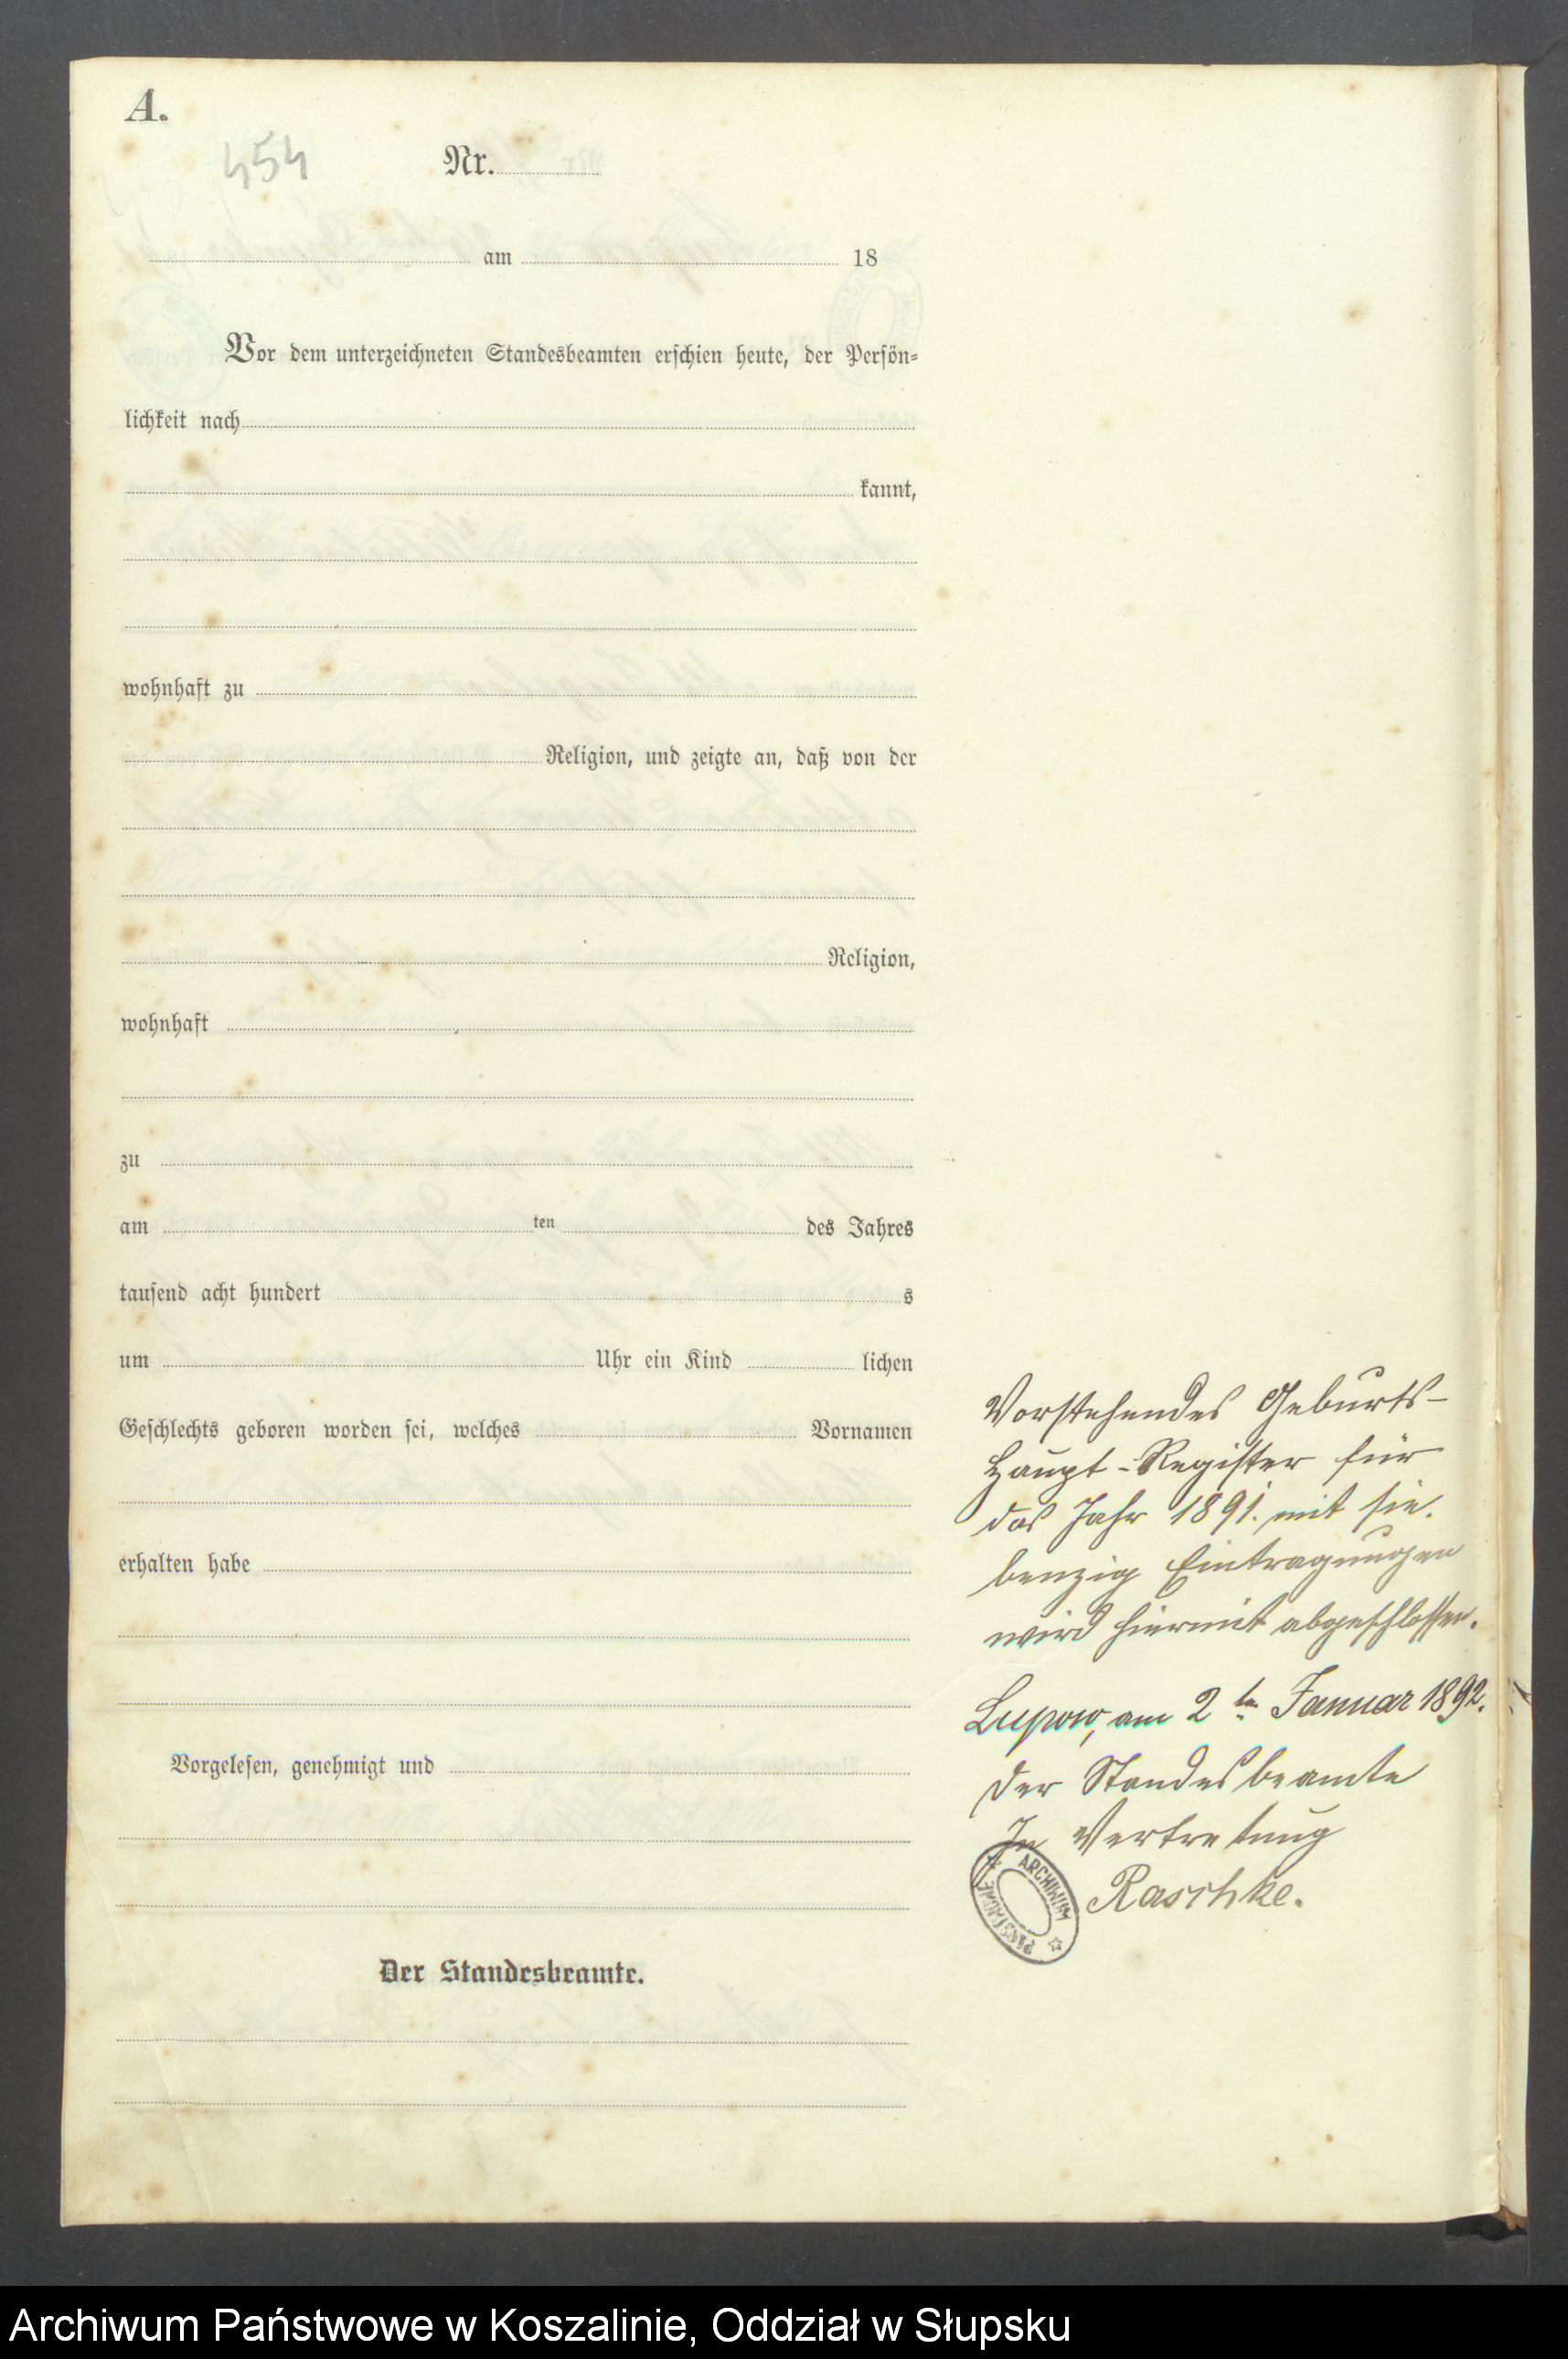 A.
454
Nr.
am 18
Vor dem unterzeichneten Standesbeamten erschien heute, der Persön=
lichkeit nach
kannt,
wohnhaft zu
Religion, und zeigte an, daß von der
Religion,
wohnhaft
zu
am ten des Jahres
tausend acht hundert s
um Uhr ein Kind lichen
Geschlechts geboren worden sei, welches Vornamen
erhalten habe
Vorgelesen, genehmigt und
Der Standesbeamte.
Vorstehendes Geburts-
Haupt-Register für
das Jahr 1891. mit sie.
benzig Eintragungen
wird hiermit abgeschlossen.
Lupow, am 2ten Januar 1892.
Der Standesbeamte
In Vertretung
Raschke.
ARCHIWUM PAŃSTWOWE
Archiwum Państwowe w Koszalinie, Oddział w Słupsku